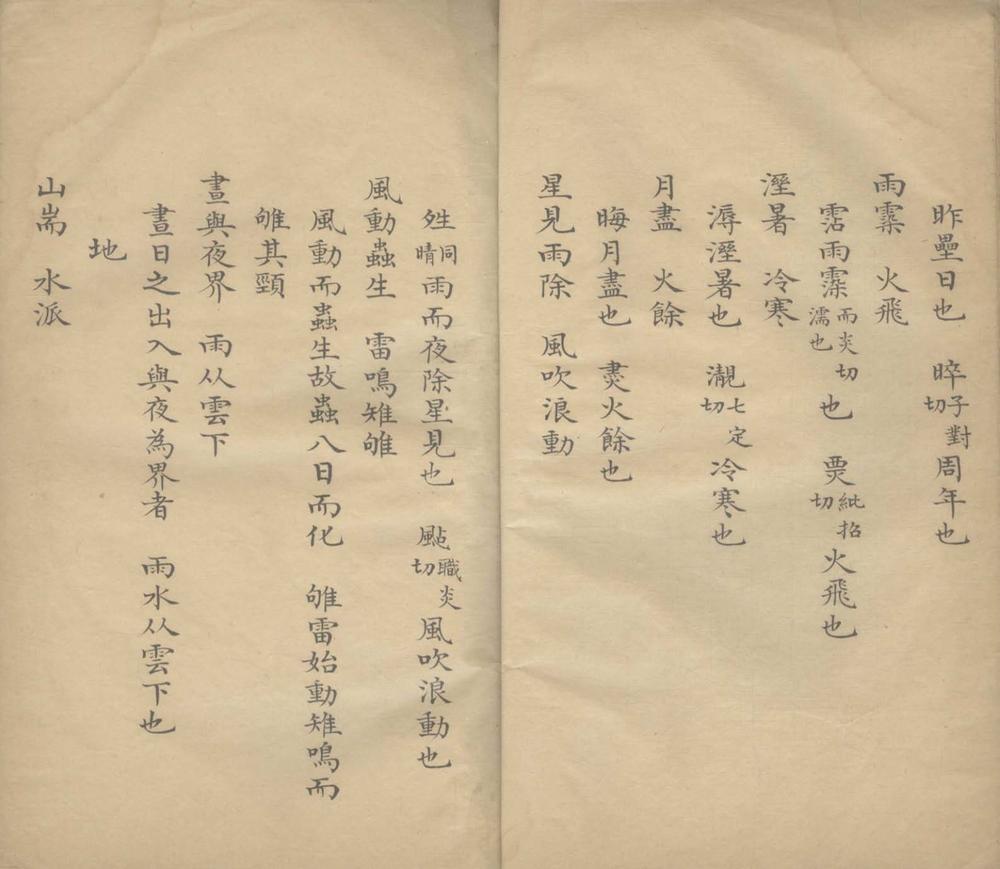 昨壘日也　晬子對切周年也
雨霂　火飛
霑雨霂而炎切濡也也　票紕招切火飛也
溼暑　冷寒
溽溼暑也　瀙七定切冷寒也
月盡　火餘
晦月盡也　㶳火餘也
星見雨除　風吹浪動
姓同晴雨而夜除星見也　颭職炎切風吹浪動也
風動蟲生　雷鳴雉雊
風動而蟲生故蟲八日而化　雊雷始動雉鳴而
雊其頸
晝與夜界　雨从雲下
晝日之出入與夜為界者　雨水从雲下也
地
山耑　水派